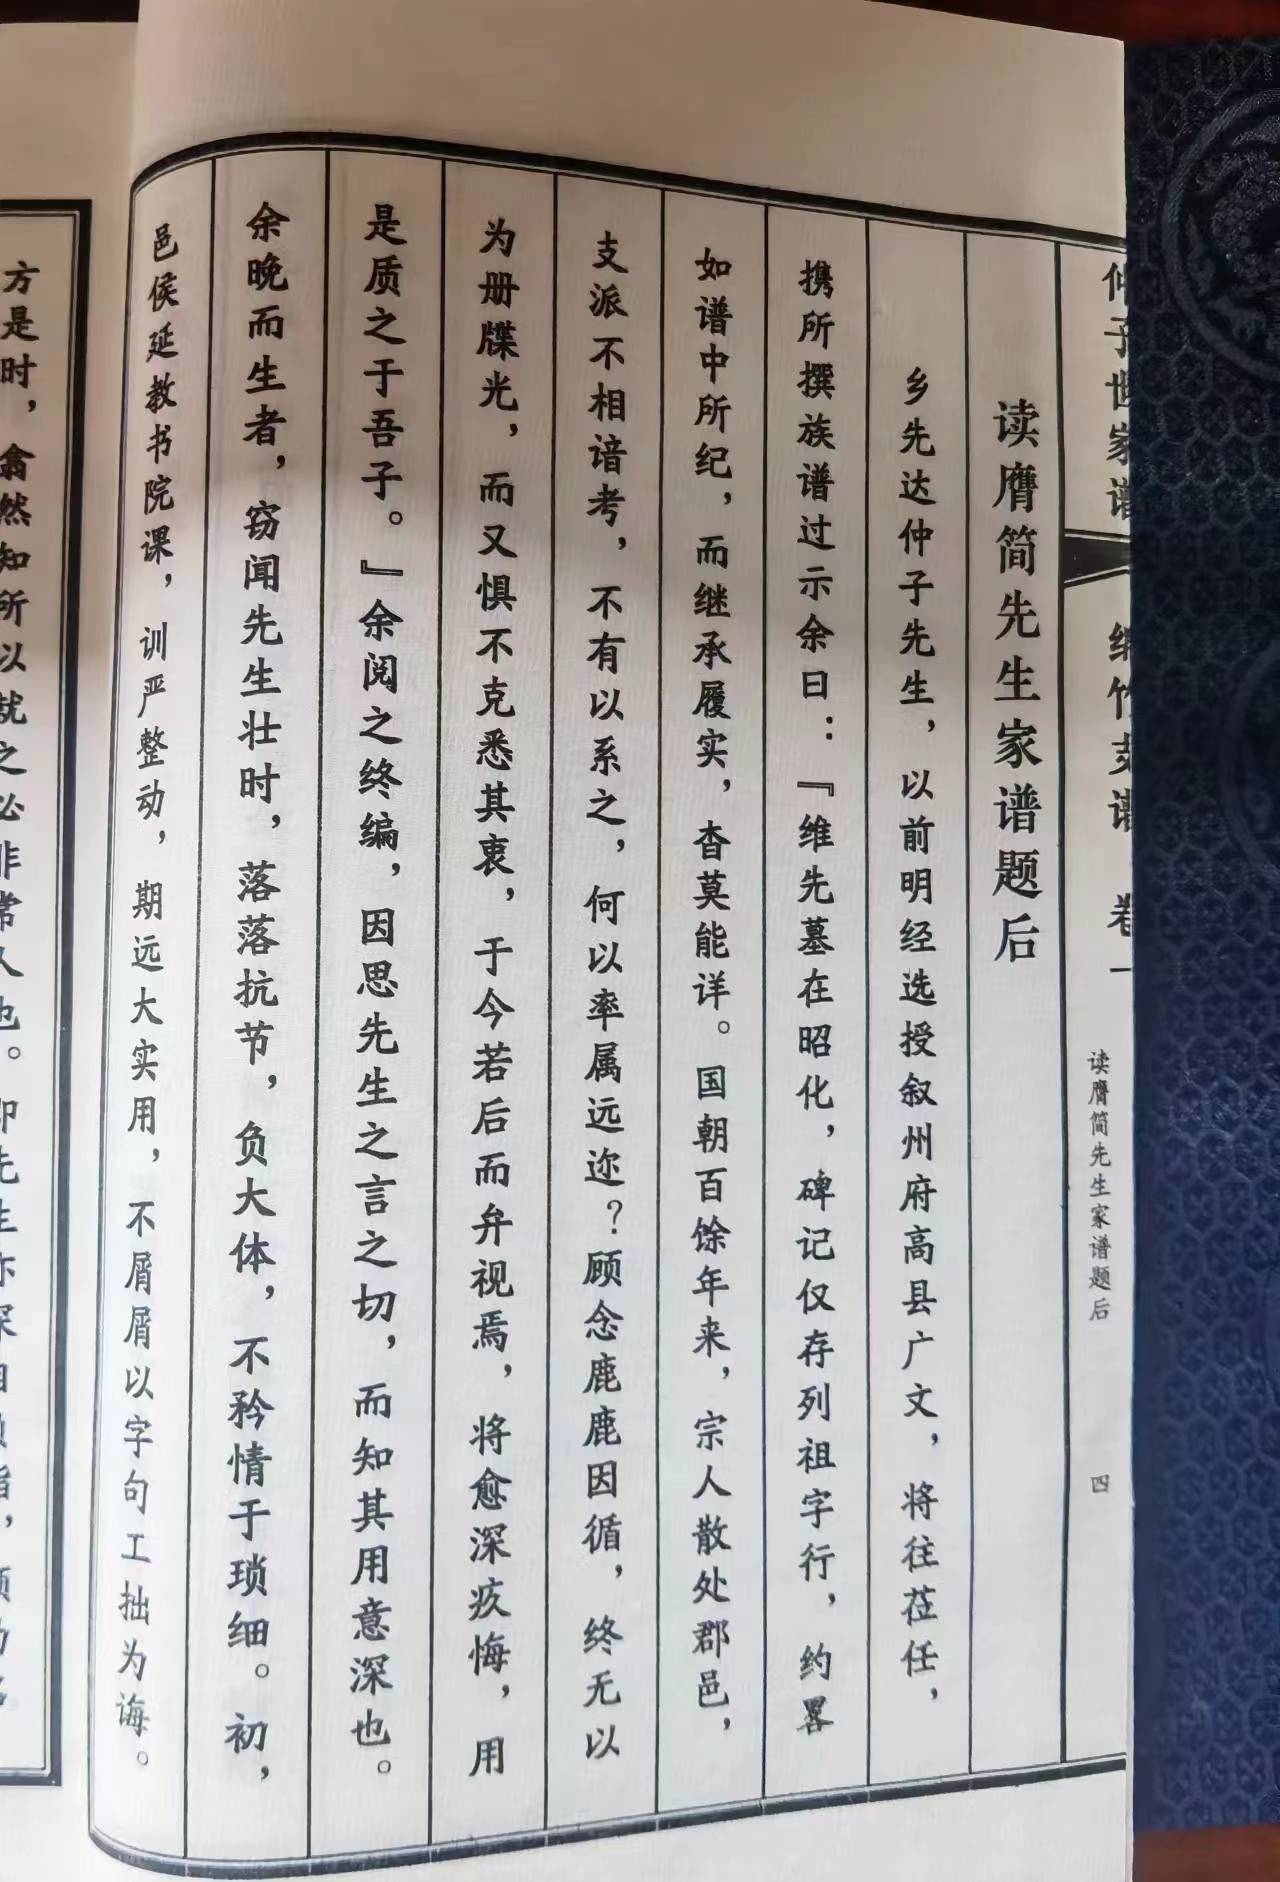 仲子世家谱
绵竹支谱 卷一
读膺简先生家谱题后
四
读膺简先生家谱题后
乡先达仲子先生，以前明经选授叙州府高县广文，将往莅任，
携所撰族谱过示余曰：『维先墓在昭化，碑记仅存列祖字行，约畧
如谱中所纪，而继承履实，杳莫能详。国朝百馀年来，宗人散处郡邑，
支派不相谙考，不有以系之，何以率属远迩？顾念鹿鹿因循，终无以
为册牒光，而又惧不克悉其衷，于今若后而弁视焉，将愈深疚悔，用
是质之于吾子。』余阅之终编，因思先生之言之切，而知其用意深也。
余晚而生者，窃闻先生壮时，落落抗节，负大体，不矜情于琐细。初，
邑侯延教书院课，训严整动，期远大实用，不屑屑以字句工拙为诲。
方是时，翕然知所以就之必非常人也。即先生亦深自